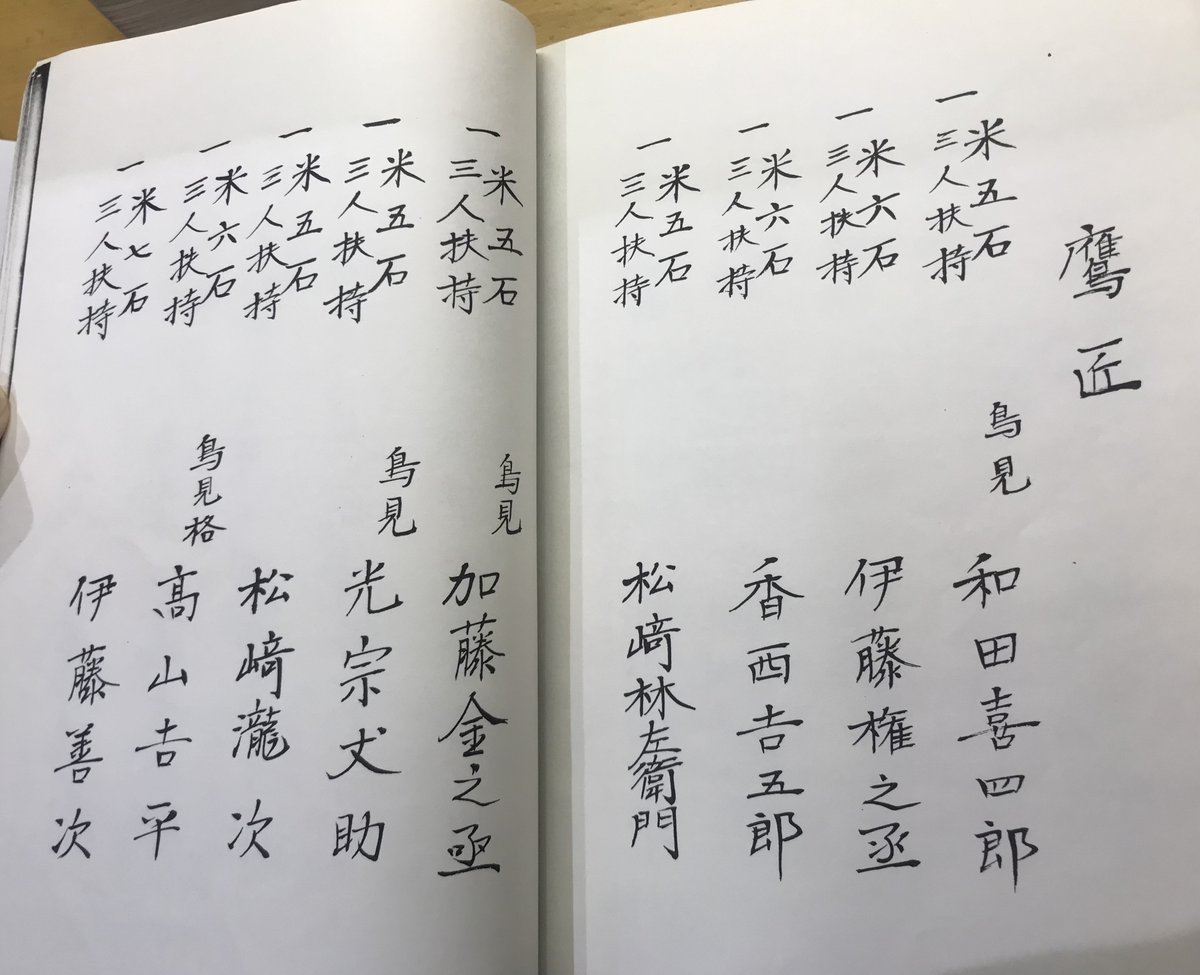 鷹匠
一 米五石
三人扶持
鳥見
和田喜四郎
一 米六石
三人扶持
伊藤権之丞
一 米六石
三人扶持
香西吉五郎
一 米五石
三人扶持
松﨑林左衛門
一 米五石
三人扶持
鳥見
加藤金之亟
一 米五石
三人扶持
鳥見
光宗丈助
一 米五石
三人扶持
松﨑瀧次
一 米六石
三人扶持
鳥見格
髙山𠮷平
一 米七石
三人扶持
伊藤善次